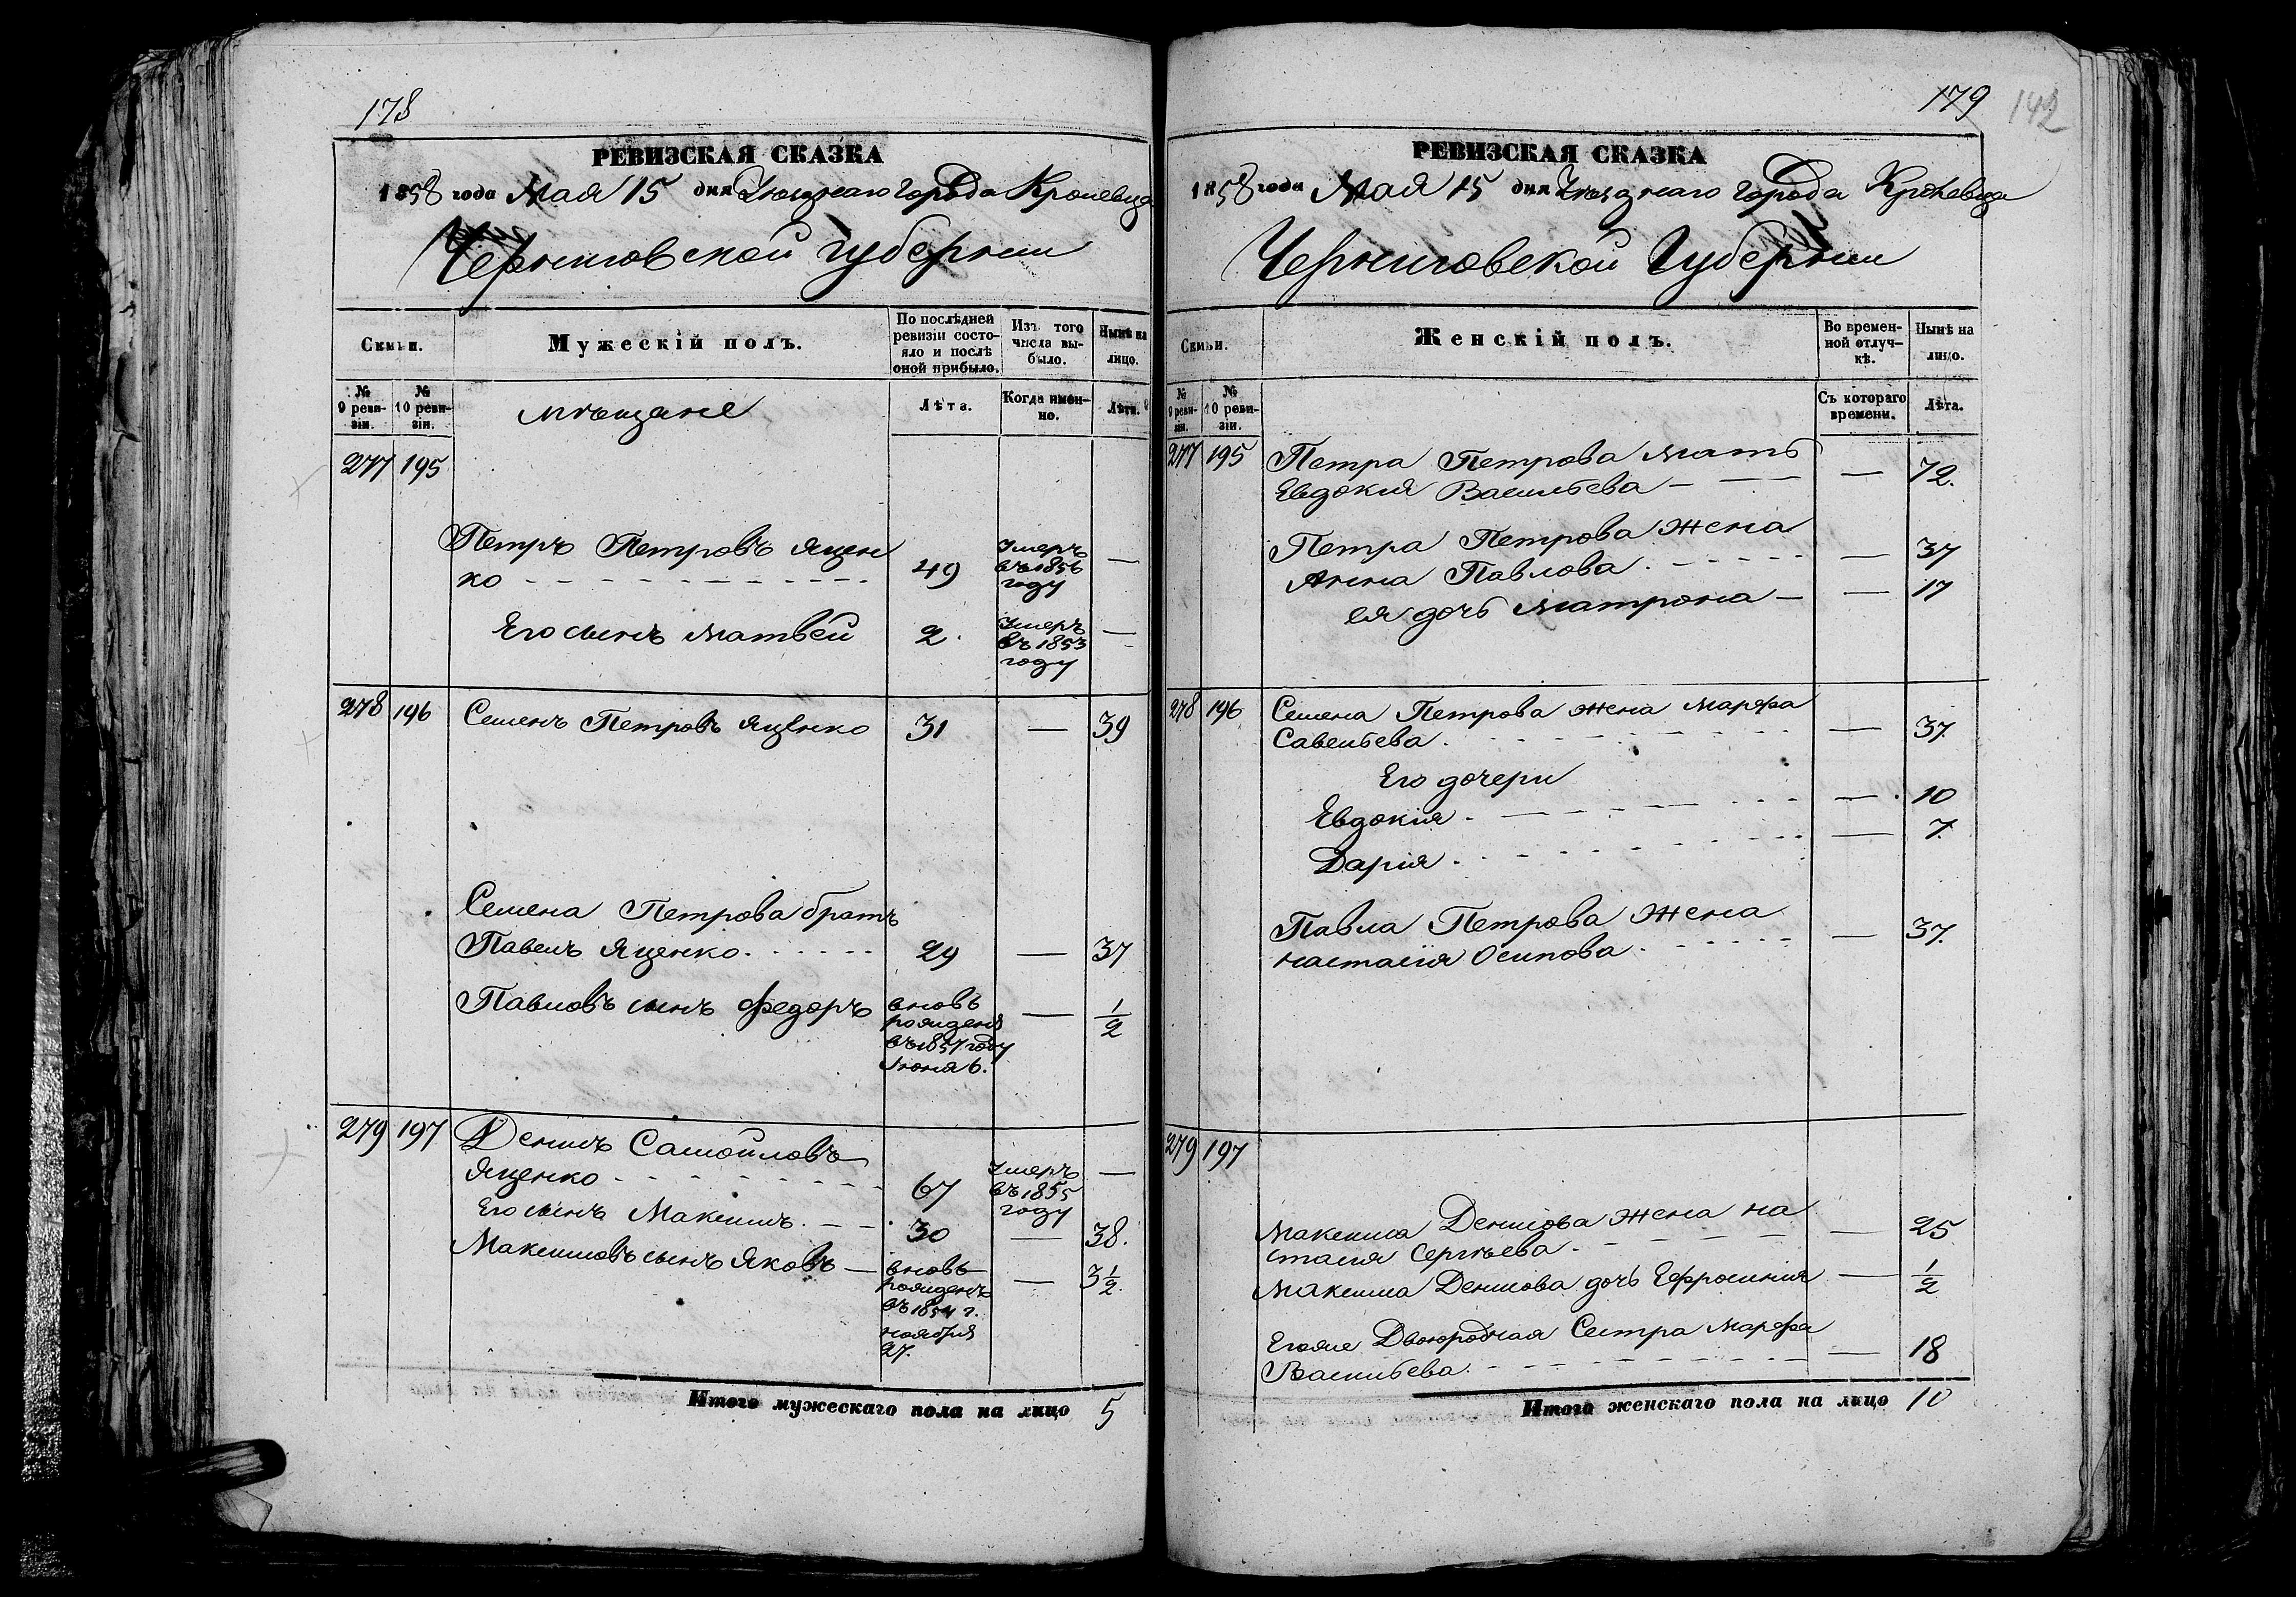 178
РЕВИЗСКАЯ СКАЗКА
1858 года Мая 15 дня Уѣзднаго города Кролевца
Черниговской губернии
Семьи.
Мужескій полъ.
По послѣдней ревизіи состояло и послѣ оной прибыло.
Изъ того числа выбыло.
Нынѣ на лицо.
№ 9 ревизіи.
№ 10 ревизіи.
мѣщане
Лѣта.
Когда именно.
Лѣта.
277 195
Петръ Петровъ Яцен
ко 49 Умеръ въ 1856 году —
Его сынъ Матвей 2. Умеръ въ 1853 году —
278 196 Семенъ Петровъ Яценко 31 — 39
Семена Петрова братъ
Павелъ Яценко 29 — 37
Павловъ сынъ Федоръ вновь рожденъ въ 1857 году Июня 6. — 1/2
279 197 Денисъ Самойловъ
Яценко 67 Умеръ въ 1855 году —
Его сынъ Максимъ 30 — 38.
Максимовъ сынъ Яковъ — вновь рожденъ въ 1854 г. ноября 27. — 3 1/2.
Итого мужескаго пола на лицо 5
179 142
РЕВИЗСКАЯ СКАЗКА
1858 года Мая 15 дня Уѣзднаго города Кролевца
Черниговской Губернии
Семьи.
Женскій полъ.
Во временной отлучкѣ.
Нынѣ на лицо.
№ 9 ревизіи.
№ 10 ревизіи.
Съ котораго времени.
Лѣта.
277 195 Петра Петрова мать
Евдокия Васильева — 72.
Петра Петрова жена
Анна Павлова — 37
ея дочь Матрона — — 17
278 196 Семена Петрова жена Марфа
Савельева — 37.
Его дочери
Евдокия — 10
Дария — 7.
Павла Петрова жена
настасия Осипова — 37.
279 197
Максима Денисова жена на
стасия Сергѣева — 25
Максима Денисова дочь Ефросиния — 1/2
Егоже Двоюродная Сестра Марфа
Васильева — 18
Итого женскаго пола на лицо 10